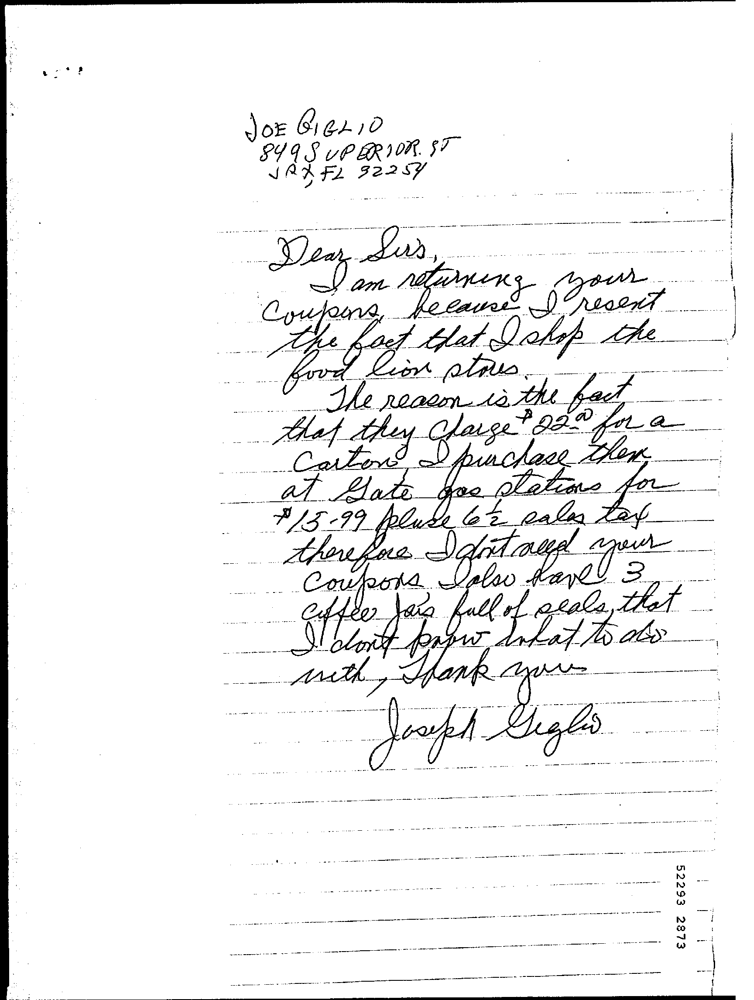 JOE GIGLIO
849 SUPERIOR. ST
JAX, FL 32254
Dear Sirs,
I am returning your
Coupons, because I resent
the fact that I shop the
food lion stores.
The reason is the fact
that they charge $22.00 for a
Carton, I purchase them
at Gate gas stations for
$15-99 pluse 6½ sales tax
therefore I dont need your
Coupons I also have 3
coffee jars full of seals, that
I don't know what to do
with, Thank you
Joseph Giglio
52293 2873